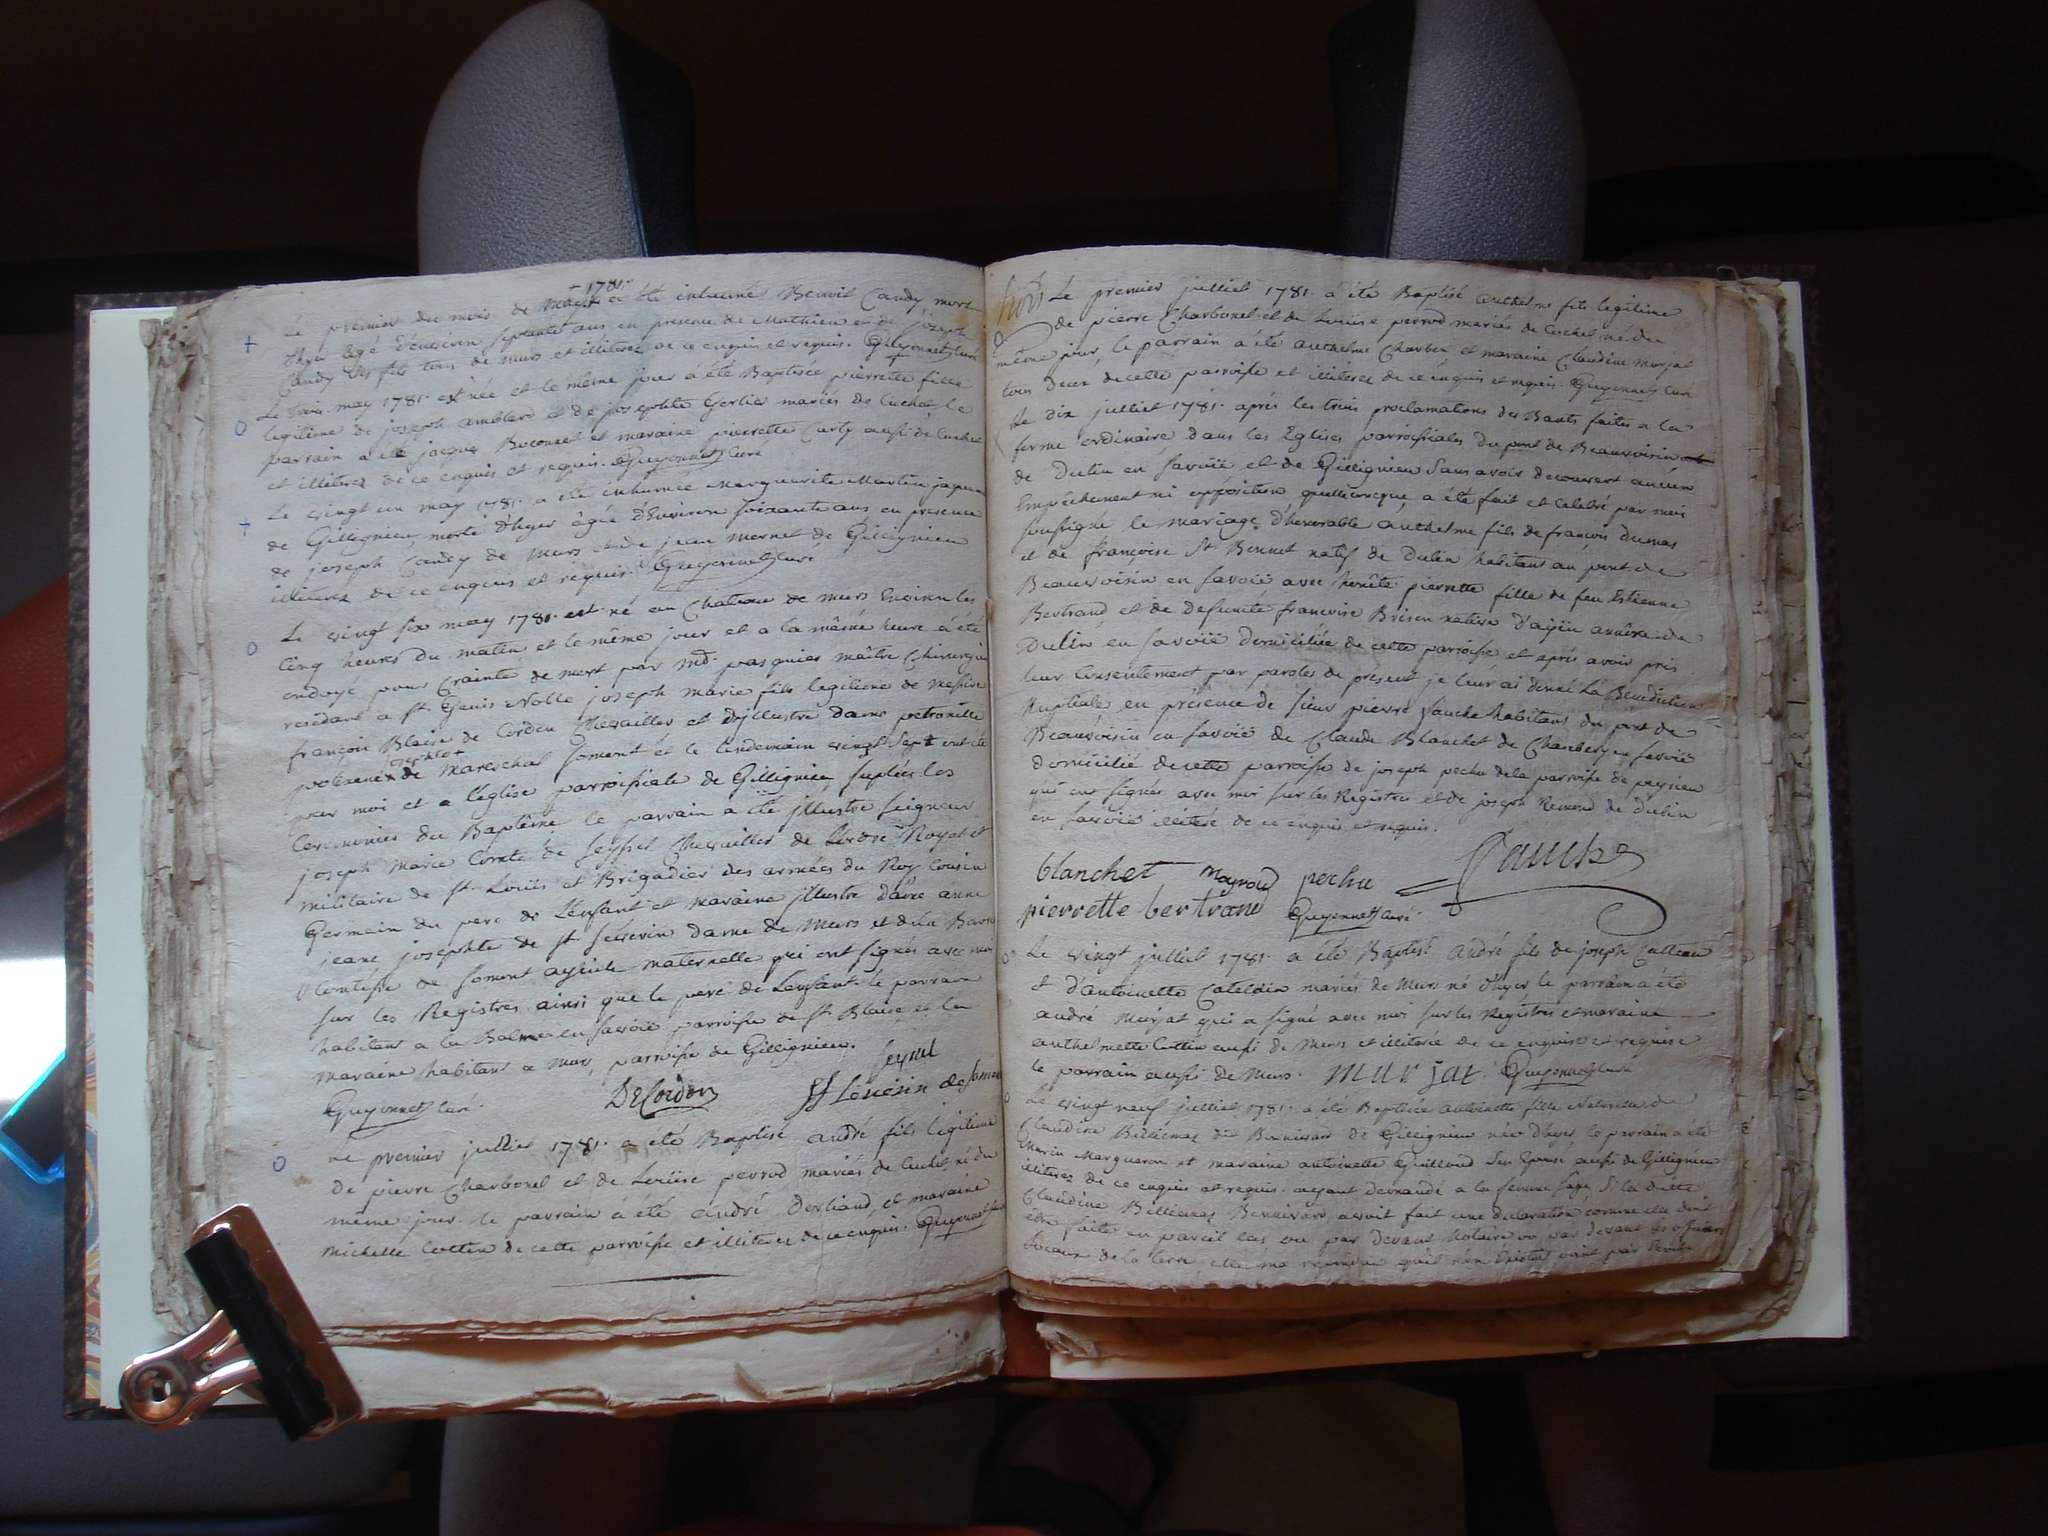 1781.
Le premier du mois de may a été inhumé Benoit Candy mort
hyer agé d'environ septante ans en presence de Mathieu et de joseph
Candy ses fils tous de murs et illiterez de ce enquis et requis. Guyonnet curé
Le trois may 1781. est née et le même jour a été Baptisée pierrette fille
legitime de joseph amblerd et de josephte Gerlier mariés de Cuchet, le
parrain a été jacque et maraine pierrette Curty aussi de Cuchet
et illiterez de ce enquis et requis. Guyonnet curé
Le vingt un may 1781. a été inhumée Marguerite Martin
de Gillignieu, morte d'hyer âgée d'Environ soixante ans en presence
de joseph Candy de Murs et de jean mornet de Gillignieu
illiterez de ce enquis et requis. Guyonnet curé
Le vingt six may 1781. est né au Chateau de murs Environ les
Cinq heures du matin et le même jour et a la même heure a été
ondoyé pour Crainte de mort par md. pasquier maître Chirurgien
residant a st Genis Noble joseph marie fils legitime de messire
françois Blaise de Cordon Chevaillier et d'illustre dame petronille
josephte
de Mareschal Somont et le lendemain vingt sept ont été
par moi et a l'eglise parroissiale de Gillignieu, suplées les
Ceremonies du Baptême le parrain a été illustre seigneur
joseph Marie Comte de Seyssel Chevaillier de l'ordre Royal et
militaire de st Louïs et Brigadier des armées du Roy cousin
Germain du pere de l'enfant et maraine illustre dame anne
jeane josephte de st sévérin dame de Murs et de la Barre
Comtesse de Somont ayeule maternelle qui ont signés avec moi
sur les Registres ainsi que le pere de l'enfant. le parrain
habitant a la Balme en savoie parroisse de st Blaise, et la
maraine habitant a Murs, parroisse de Gillignieu.
Seyssel
Guyonnet curé. DeCordon St Sévérin de Somont
Le premier juilliet 1781. a été Baptisé andré fils legitime
de pierre Charbonel et de Louïse perrod mariés de Cuchet, né du
même jour. le parrain a été andré Dertiaud, et maraine
michelle Cottin de cette parroisse et illiterez de ce enquis. Guyonnet curé
Le premier juilliet 1781. a été Baptisé anthelme fils legitime
de pierre Charbonel et de Louïse perrod mariés de Cuchet, né du
même jour, le parrain a été anthelme Charbon et maraine Claudine Murjat
tous deux de cette parroisse et illiterez de ce enquis et requis. Guyonnet curé
Le dix juilliet 1781. aprés les trois proclamations des Bants faites a la
forme ordinaire dans les Eglises parroissiales du pont de Beauvoisin
de Dulin en Savoïe et de Gillignieu sans avoir decouvert aucun
Empêchement ni oppôsition quelleconque, a été fait et Celebré par moi
soussigné le mariage d'honorable anthelme fils de françois Dumas
et de françoise st Bonnet natif de Dulin habitant au pont de
Beauvoisin en savoïe avec honête pierrette fille de feu Estienne
Bertrand et de Defunte françoise Brison native d'ayin annêxe de
Dulin en savoïe domiciliée de cette parroisse et aprés avoir pris
leur Consentement par paroles de present je leur ai donné la Benediction
Nuptiale en présence de sieur pierre Vauche habitant du pont de
Beauvoisin en savoïe de Claude Blanchet de Chambery en savoïe
domicilié de cette parroisse de joseph pechu de la parroisse de peyrieu
qui ont signés avec moi sur les Registres et de joseph Remond de Dulin
en savoïe illiteré de ce enquis et requis.
blanchet pechu Vauche
pierrette bertrand Guyonnet curé.
Le vingt juilliet 1781. a été Baptisé andré fils de joseph Culleau
et d'antoinette Cateldin mariés de Murs né d'hyer le parrain a été
andré Murjat qui a signé avec moi sur les Registres et maraine
anthelmette Cottin aussi de Murs et illiterée de ce enquise et requise
le parrain aussi de Murs. murjat. Guyonnet curé
Le vingt neuf juilliet 1781. a été Baptisée antoinette fille Naturelle de
Claudine Billiemaz dit Bonnivard de Gillignieu née d'hyer le parrain a été
Marin Margueron et maraine antoinette Guilloud son Epouse aussi de Gillignieu
illiterez de ce enquis et requis. ayant demandé a la femme sage si la ditte
Claudine Billiemaz Bonnivard, avoit fait une declaration comme elle doit
être faite en pareil cas ou par devant Notaire ou par devant les officiers
Locaux de la terre, elle m'a repondue qu'il n'en Existoit point par